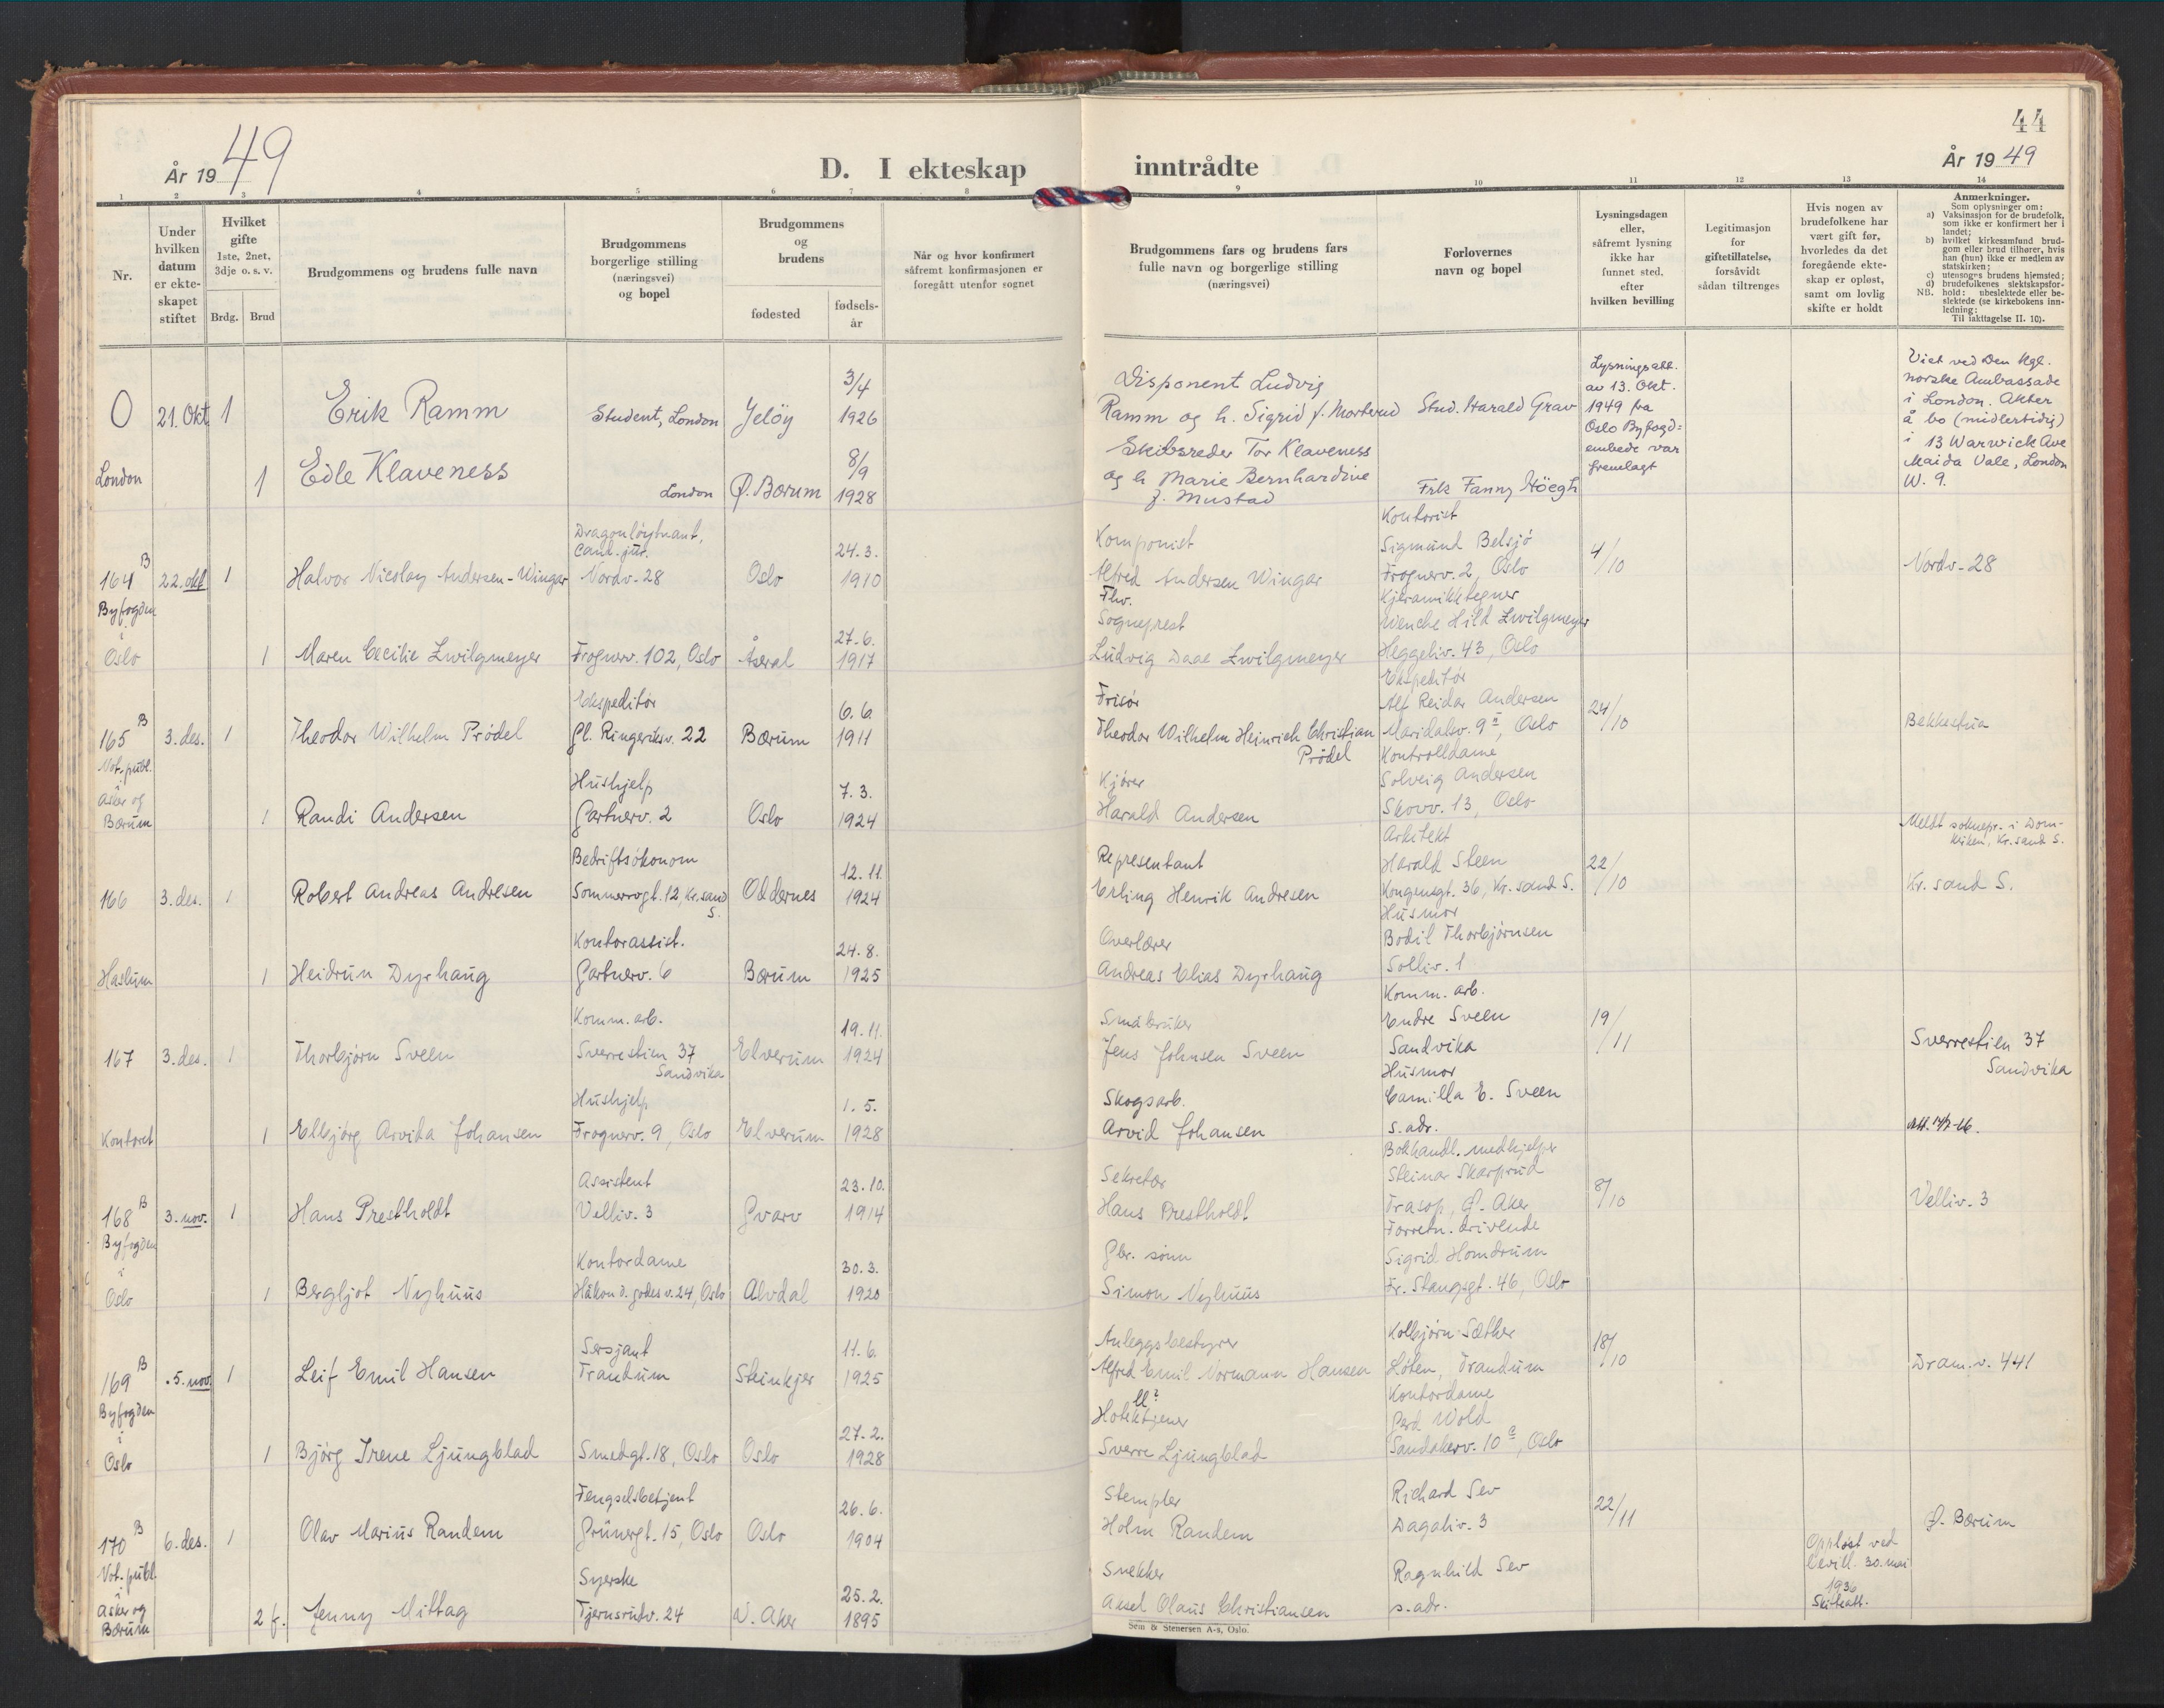 44
År 19 49
D. I ekteskap inntrådte
År 19 49
1 2 3 4 5 6 7 8 9 10 11 12 13 14
Nr.
Under hvilken datum er ekte- skapet stiftet
Hvilket gifte 1ste, 2net, 3dje o. s. v.
Brdg. Brud
Brudgommens og brudens fulle navn
Brudgommens borgerlige stilling (næringsvei) og bopel
Brudgommens og brudens
fødested
fødsels- år
Når og hvor konfirmert
såfremt konfirmasjonen er
foregått utenfor sognet
Brudgommens fars og brudens fars
fulle navn og borgerlige stilling
(næringsvei)
Forlovernes
navn og bopel
Lysningsdagen
eller,
såfremt lysning
ikke har
funnet sted,
efter
hvilken bevilling
Legitimasjon
for
giftetillatelse,
forsåvidt
sådan tiltrenges
Hvis nogen av
brudefolkene har
vært gift før,
hvorledes da det
foregående ekte-
skap er opløst,
samt om lovlig
skifte er holdt
Anmerkninger.
Som oplysninger om:
a) Vaksinasjon for de brudefolk, som ikke er konfirmert her i landet;
b) hvilket kirkesamfund brud- gom eller brud tilhører, hvis han (hun) ikke er medlem av statskirken;
c) utensogns brudens hjemsted;
d) brudefolkenes slektskapsfor-
NB. hold: ubeslektede eller be- slektede (se kirkebokens inn- ledning:
Til iakttagelse II. 10).
O 21. Okt 1 Erik Ramm Student, London Jeløy 3/4 1926
Disponent Ludvig
Ramm og h. Sigrid f. Morterud Stud. Harald Grav
Lysningsatt.
av 13. Okt.
1949 fra
Oslo Byfogd=
embede var
fremlagt
Viet ved Den kgl.
norske Ambassade
i London. Akter
å bo (midlertidig)
i 13 Warwick Ave
Maida Vale, London
W. 9.
London 1 Edle Klaveness London Ø. Bærum 8/9 1928
Skibsreder Tor Klaveness
og h Marie Bernhardine
f. Mustad Frk Fanny Höegh
164 B 22. okt 1 Halvor Nicolay Andersen-Wingar
Dragonløytnant,
Cand. jur.
Nordv. 28 Oslo 24.3. 1910
Komponist
Alfred Andersen Wingar
Kontorist
Sigmund Belsjø
Frognerv. 2, Oslo
4/10 Nordv. 28
Byfogden
i
Oslo 1 Maren Cecilie Zwilgmeyer Frognerv. 102, Oslo Åseral 27.6. 1917
Fhv.
Sogneprest
Ludvig Daae Zwilgmeyer
Kjeramikktegner
Wenche Hild Zwilgmeyer
Heggeliv. 43, Oslo
165 B 3. des. 1 Theodor Wilhelm Prödel
Ekspeditør
Gl. Ringeriksv. 22 Bærum 6.6. 1911
Frisør
Theodor Wilhelm Heinrich Christian
Prödel
Ekspeditør
Alf Reidar Andersen
Maridalsv. 9 II, Oslo
24/10 Bekkestua
Not. publ.
i
Asker og
Bærum 1 Randi Andersen
Hushjelp
Gartnerv. 2 Oslo 7.3. 1924
Kjører
Harald Andersen
Kontrolldame
Solveig Andersen
Skovv. 13, Oslo
166 3. des. 1 Robert Andreas Andresen
Bedriftsøkonom
Sommerrogt. 12, Kr.sand S. Oddernes 12.11. 1924
Representant
Erling Henrik Andresen
Arkitekt
Harald Steen
Kongensgt. 36, Kr. sand S.
22/10
Meldt soknepr. i Dom-
kirken, Kr.sand S.
Kr. sand S.
Haslum 1 Heidrun Dyrhaug
Kontorassist.
Gartnerv. 6 Bærum 24.8. 1925
Overlærer
Andreas Elias Dyrhaug
Husmor
Bodil Thorbjørnsen
Solliv. 1
167 3. des. 1 Thorbjørn Sveen
Komm. arb.
Sverrestien 37
Sandvika Elverum 19.11. 1924
Småbruker
Jens Johnsen Sveen
Komm. arb.
Endre Sveen
Sandvika
19/11
Sverrestien 37
Sandvika
Kontoret 1 Elbjørg Arvida Johansen
Hushjelp
Frognerv. 9, Oslo Elverum 1.5. 1928
Skogsarb.
Arvid Johansen
Husmor
Camilla E. Sveen
s. adr.
168 B 3. nov. 1 Hans Prestholdt
Assistent
Velliv. 3 Gvarv 23.10. 1914
Sekretær
Hans Prestholdt
Bokhandl. medhjelper
Steinar Skarprud
Trasop, Ø. Aker
8/10 Velliv. 3
Byfogden
i
Oslo 1 Bergljot Nyhuus
Kontordame
Håkon d. godes v. 24, Oslo Alvdal 30.3. 1920
Gbr. sønn
Simon Nyhuus
Forretn. drivende
Sigrid Homdrum
Fr. Stangsgt. 46, Oslo
169 B 5. nov. 1 Leif Emil Hansen
Sersjant
Trandum Steinkjer 11.6. 1925
Anleggsbestyrer
Alfred Emil Normann Hansen
Kolbjørn Sæther
Løten, Trandum
18/10 Dram. v. 441
Byfogden
i
Oslo 1 Bjørg Irene Ljungblad Smedgt. 18, Oslo Oslo 27.2. 1928
ll?
Hotektjener
Sverre Ljungblad
Kontordame
Gerd Wold
Sandakerv. 10 a, Oslo
170 B 6. des. 1 Olav Marius Randem
Fengselsbetjent
Grünergt. 15, Oslo Oslo 26.6. 1904
Stempler
Holm Randem
Richard Sev
Dagaliv. 3
22/11 Ø. Bærum
Not. publ.
i
Asker og
Bærum 2 f. Jenny Mittag
Syerske
Tjernsrudv. 24 V. Aker 25.2. 1895
Snekker
Axel Olaus Christiansen
Ragnhild Sev
s. adr.
Oppløst ved
bevill. 30. mai
1936
Skifteatt.
Sem & Stenersen A-s, Oslo.